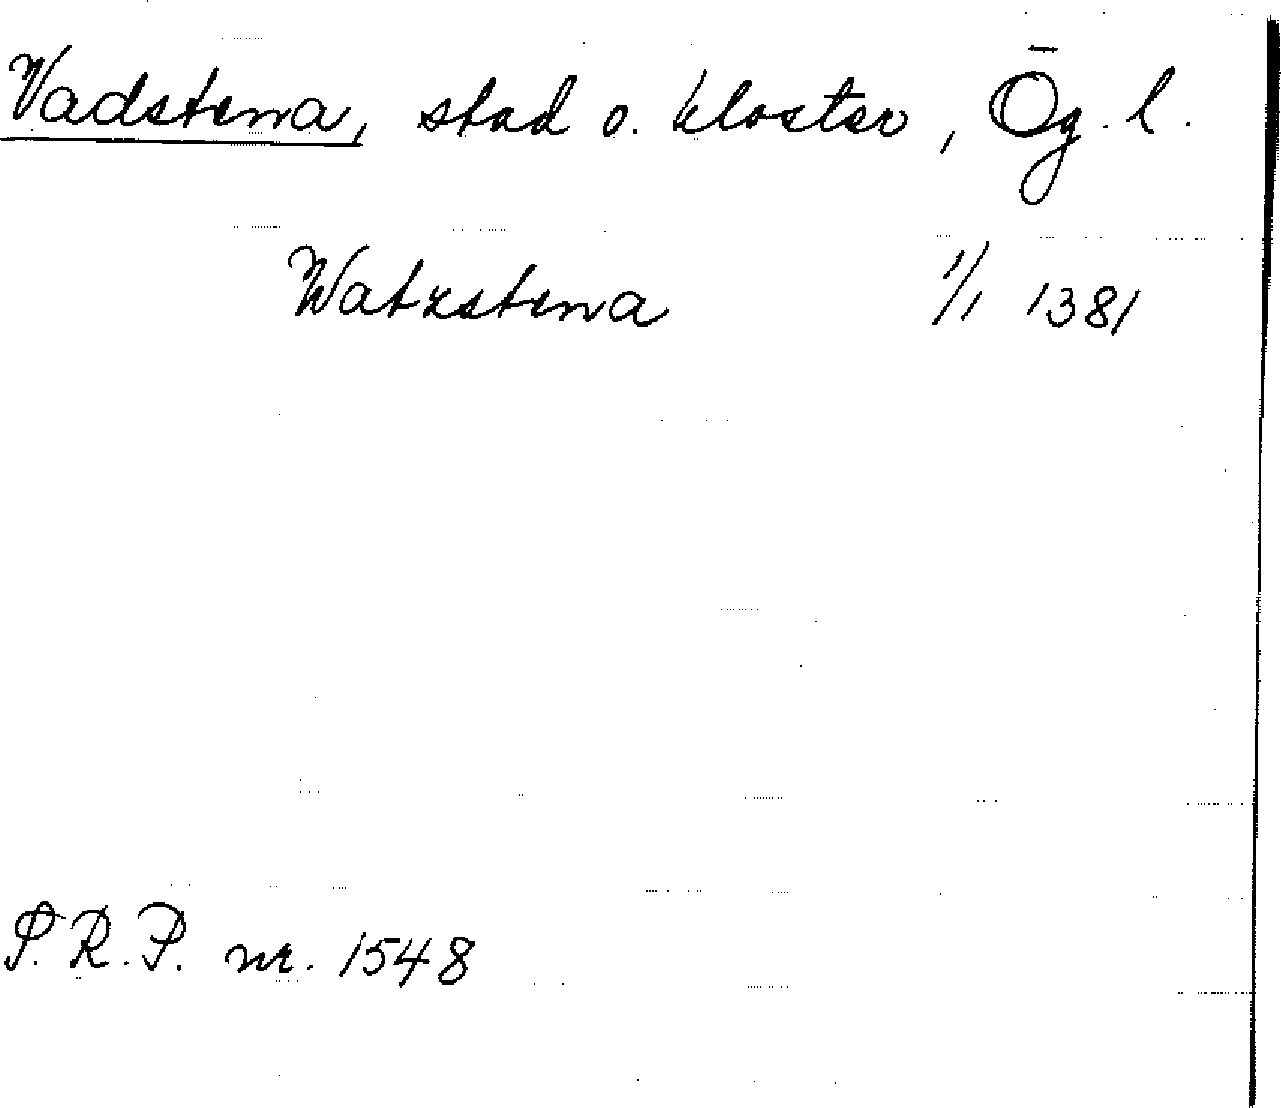 Vadstena, stad o. kloster, Ög. l.
Watzstena 1/1 1381
S.R.P. nr. 1548